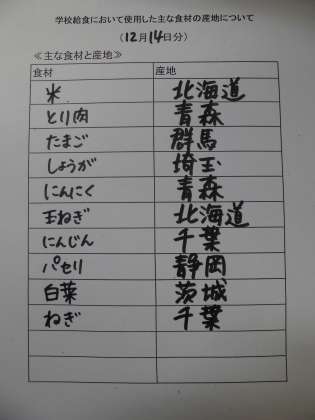 学校給食において使用した主な食材の産地について
（12月14日分）
≪主な食材と産地≫
食材 産地
米 北海道
とり肉 青森
たまご 群馬
しょうが 埼玉
にんにく 青森
玉ねぎ 北海道
にんじん 千葉
パセリ 静岡
白菜 茨城
ねぎ 千葉